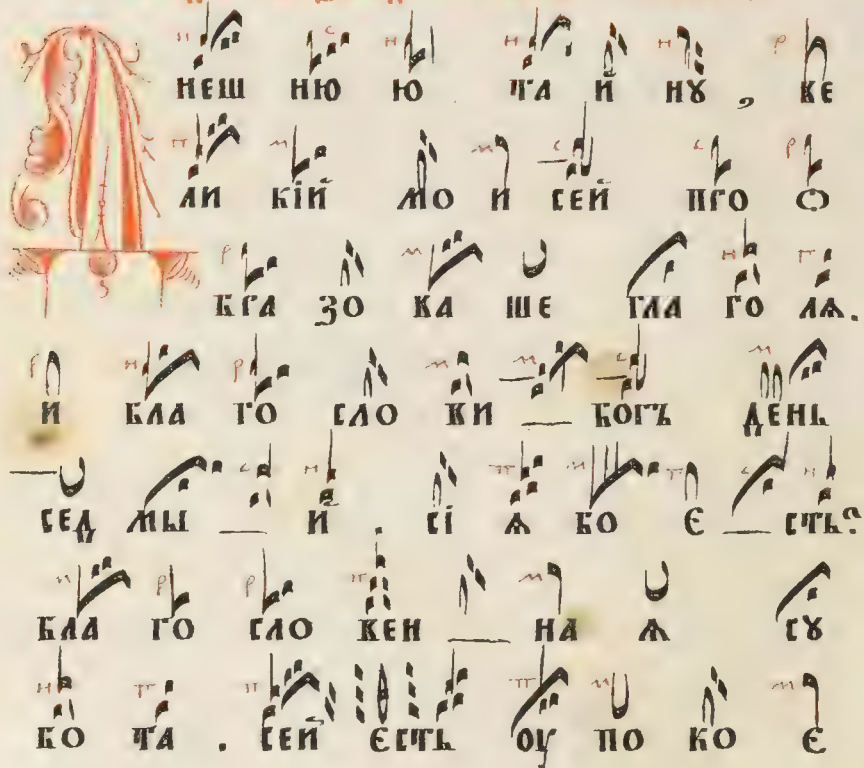 Днешнюю тайну, ве
ликій мо и сей про ѻ
бра зо ва ше гла го лѧ.
и бла го сло ви — богъ день
сед мы — й . сі ѧ бо є — сть?
бла го сло вен — на ѧ су
бо та . сей єсть оу по ко є